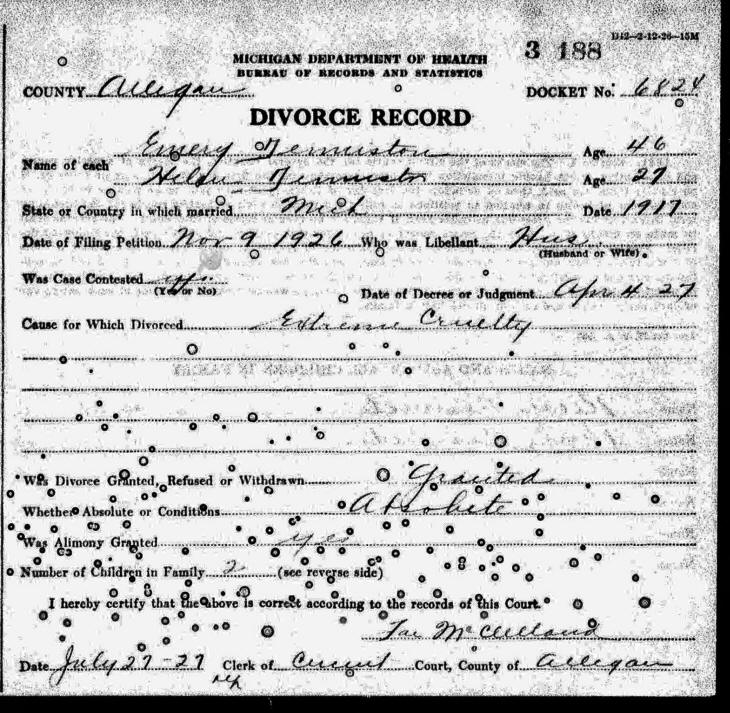 D42—2-12-26—15M
3 188
MICHIGAN DEPARTMENT OF HEALTH
BUREAU OF RECORDS AND STATISTICS
COUNTY Allegan DOCKET No. 6824
DIVORCE RECORD
Emery Age 46
Name of each
Age 27
State or Country in which married Mich Date 1917
Date of Filing Petition Nov 9 1926 Who was Libellant Hus.
(Husband or Wife).
Was Case Contested
(Yes or No)
Date of Decree or Judgment Apr 4-27
Cause for Which Divorced Extreme Cruelty
Was Divorce Granted, Refused or Withdrawn Granted
Whether Absolute or Conditions Absolute
Was Alimony Granted yes
Number of Children in Family 2 (see reverse side)
I hereby certify that the above is correct according to the records of this Court.
McClelland
Date July 27-27 Clerk of Circuit Court, County of Allegan